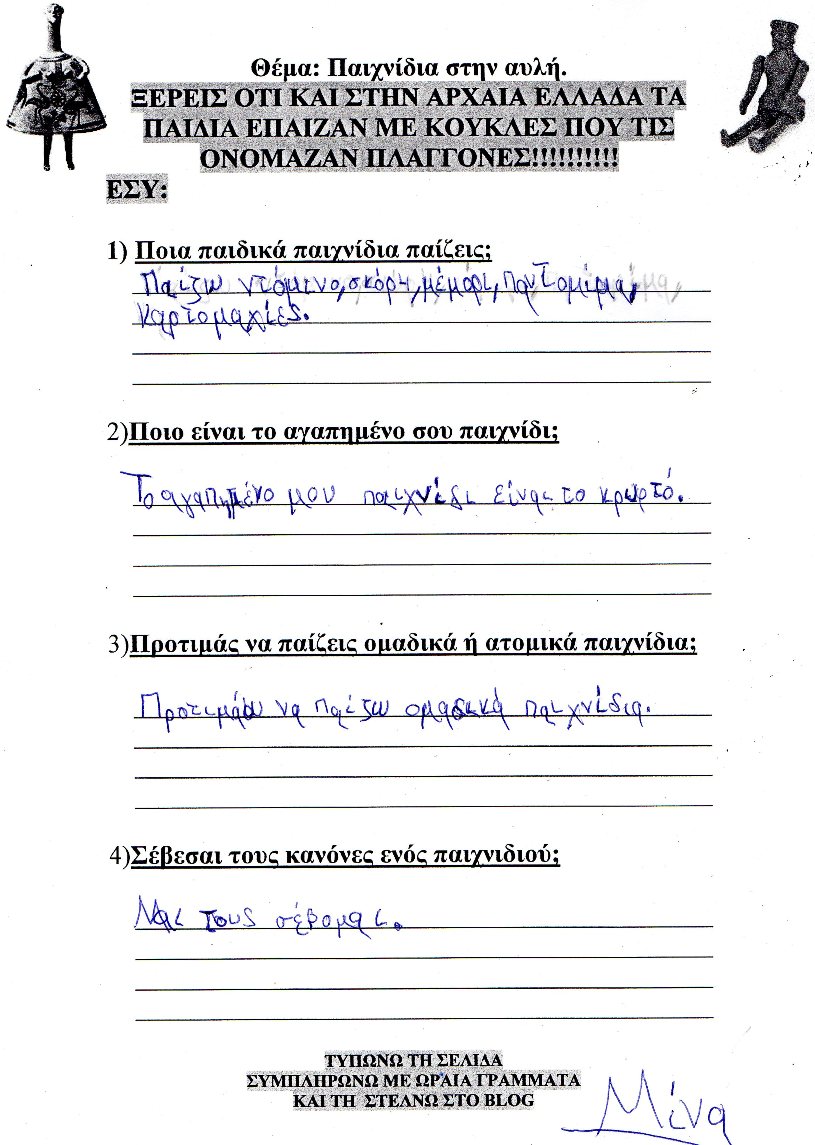 Θέμα: Παιχνίδια στην αυλή.
ΞΕΡΕΙΣ ΟΤΙ ΚΑΙ ΣΤΗΝ ΑΡΧΑΙΑ ΕΛΛΑΔΑ ΤΑ
ΠΑΙΔΙΑ ΕΠΑΙΖΑΝ ΜΕ ΚΟΥΚΛΕΣ ΠΟΥ ΤΙΣ
ΟΝΟΜΑΖΑΝ ΠΛΑΓΓΟΝΕΣ!!!!!!!!!!
ΕΣΥ:
1) Ποια παιδικά παιχνίδια παίζεις;
Παίζω ντόμινο, σκόρ4, μέμορι, παντομίμα,
καρτομαχίες.
2)Ποιο είναι το αγαπημένο σου παιχνίδι;
Το αγαπημένο μου παιχνίδι είναι το κρυφτό.
3)Προτιμάς να παίζεις ομαδικά ή ατομικά παιχνίδια;
Προτιμάω να παίζω ομαδικά παιχνίδια.
4)Σέβεσαι τους κανόνες ενός παιχνιδιού;
Ναι τους σέβομαι.
ΤΥΠΩΝΩ ΤΗ ΣΕΛΙΔΑ
ΣΥΜΠΛΗΡΩΝΩ ΜΕ ΩΡΑΙΑ ΓΡΑΜΜΑΤΑ
ΚΑΙ ΤΗ ΣΤΕΛΝΩ ΣΤΟ BLOG
Μίνα